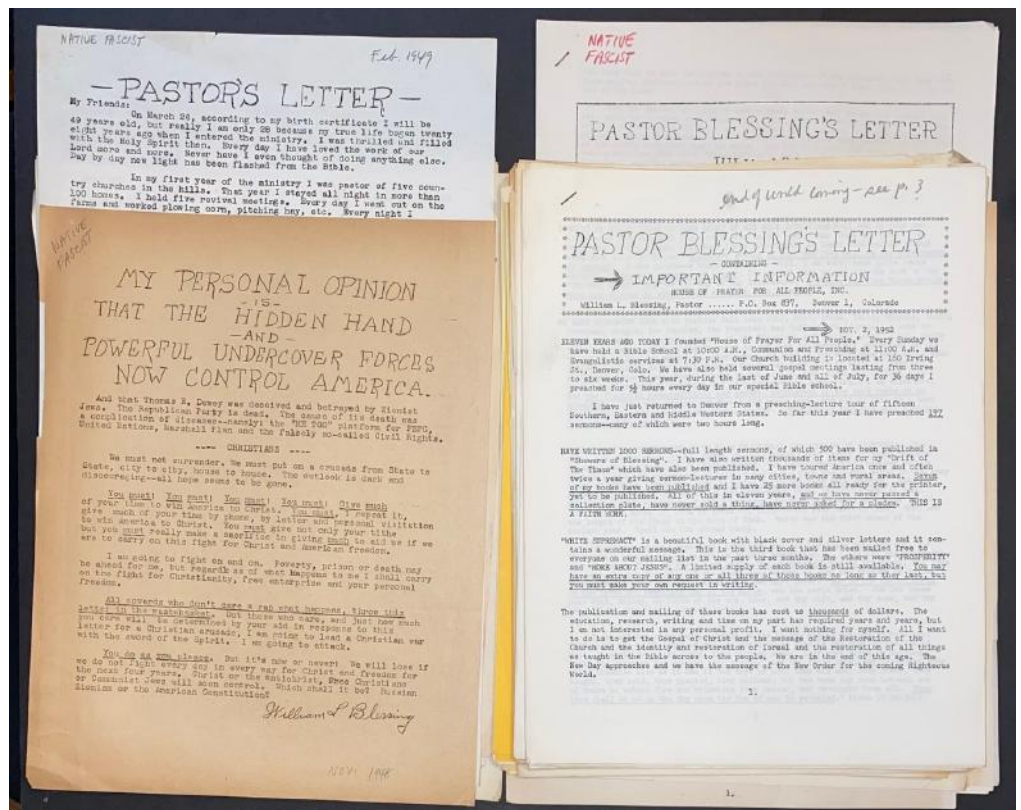 NATIVE FASCIST
Feb. 1949
— PASTOR'S LETTER —
My Friends:
On March 24, according to my birth certificate I will be
49 years old, but really I am only 28 because my true life began twenty
eight years ago when I entered the ministry. I was thrilled and filled
with the Holy Spirit then. Every day I have loved the work of our
Lord more and more. Never have I even thought of doing anything else.
Day by day new light has been flashed from the Bible.
In my first year of the ministry I was pastor of five coun-
try churches in the hills. That year I stayed all night in more than
100 homes. I held five revival meetings. Every day I went out on the
farms and worked plowing corn, pitching hay, etc. Every night I
NATIVE
FASCIST
MY PERSONAL OPINION
-IS-
THAT THE HIDDEN HAND
—AND—
POWERFUL UNDERCOVER FORCES
NOW CONTROL AMERICA.
And that Thomas E. Dewey was deceived and betrayed by Zionist
Jews. The Republican Party is dead. The cause of its death was
a complication of diseases--namely: the "ME TOO" platform for FEPC,
United Nations, Marshall Plan and the falsely so-called Civil Rights.
---- CHRISTIANS ----
We must not surrender. We must put on a crusade from State to
State, city to city, house to house. The outlook is dark and
discouraging--all hope seems to be gone.
You must! You must! You must! You must! Give much
of your time to win America to Christ. You must, I repeat it,
give much of your time by phone, by letter and personal visitation
to win America to Christ. You must give not only your tithe
but you must really make a sacrifice in giving much to aid us if we
are to carry on this fight for Christ and American freedom.
I am going to fight on and on. Poverty, prison or death may
be ahead for me, but regardless of what happens to me I shall carry
on the fight for Christianity, free enterprise and your personal
freedom.
All cowards who don't care a rap what happens, throw this
letter in the wastebasket. But those who care, and just how much
you care will be determined by your aid in response to this
letter for a Christian crusade, I am going to lead a Christian war
with the sword of the Spirit. I am going to attack.
You do as you please. But it's now or never! We will lose if
we do not fight every day in every way for Christ and freedom for
the next four years. Christ or the antichrist, Free Christians
or Communist Jews will soon control. Which shall it be? Russian
Zionism or the American Constitution?
William L Blessing
NOV. 1948
NATIVE
FASCIST
PASTOR BLESSING'S LETTER
end of world coming - see p. 3
PASTOR BLESSING'S LETTER
- CONTAINING -
→ IMPORTANT INFORMATION
HOUSE OF PRAYER FOR ALL PEOPLE, INC.
William L. Blessing, Pastor ...... P.O. Box 837, Denver 1, Colorado
→ NOV. 2, 1952
ELEVEN YEARS AGO TODAY I founded "House of Prayer For All People." Every Sunday we
have held a Bible School at 10:00 A.M., Communion and Preaching at 11:00 A.M. and
Evangelistic services at 7:30 P.M. Our Church building is located at 160 Irving
St., Denver, Colo. We have also held several gospel meetings lasting from three
to six weeks. This year, during the last of June and all of July, for 36 days I
preached for 5½ hours every day in our special Bible school.
I have just returned to Denver from a preaching-lecture tour of fifteen
Southern, Eastern and Middle Western States. So far this year I have preached 197
sermons--many of which were two hours long.
HAVE WRITTEN 1000 SERMONS--full length sermons, of which 500 have been published in
"Showers of Blessing". I have also written thousands of items for my "Drift of
The Times" which have also been published. I have toured America once and often
twice a year giving sermon-lectures in many cities, towns and rural areas. Seven
of my books have been published and I have 25 more books all ready for the printer,
yet to be published. All of this in eleven years, and we have never passed a
collection plate, have never sold a thing, have never asked for a pledge. THIS IS
A FAITH WORK.
"WHITE SUPREMACY" is a beautiful book with black cover and silver letters and it con-
tains a wonderful message. This is the third book that has been mailed free to
everyone on our mailing list in the past three months. The others were "PROSPERITY"
and "MORE ABOUT JESUS". A limited supply of each book is still available. You may
have an extra copy of any one or all three of these books as long as they last, but
you must make your own request in writing.
The publication and mailing of these books has cost us thousands of dollars. The
education, research, writing and time on my part has required years and years, but
I am not interested in any personal profit. I want nothing for myself. All I want
to do is to get the Gospel of Christ and the message of the Restoration of the
Church and the identity and restoration of Israel and the restoration of all things
as taught in the Bible across to the people. We are in the end of this age. The
New Day approaches and we have the message of the New Order for the coming Righteous
World.
1.
1.